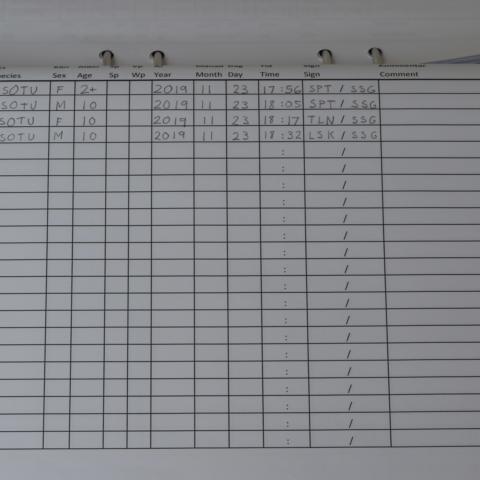 pecies Sex Age Sp Wp Year Month Day Time Sign Comment
SOTU F 2+ 2019 11 23 17:56 SPT / SSG
SOTU M 10 2019 11 23 18:05 SPT / SSG
SOTU F 10 2019 11 23 18:17 TLN / SSG
SOTU M 10 2019 11 23 18:32 LSK / SSG
: /
: /
: /
: /
: /
: /
: /
: /
: /
: /
: /
: /
: /
: /
: /
: /
: /
: /